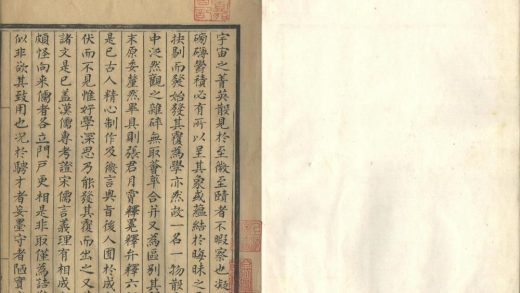 宇宙之菁英散見於至微至賾者不暇察也凝
磅礴鬱積必有所以呈其象或蘊結於晦昧之
抉剔而發始發其覆為學亦然故一名一物散
中泛然觀之雜碎無取薈萃合并又為區別其
末原委釐然畢具則張君月霄釋冕釋弁釋六
是已古人精心制作及微言典旨後人囿於成
伏而不見惟好學深思乃能發其覆而出之又
諸文是已蓋漢儒專考證宋儒言義理有相成
頗怪向來儒者各立門戶更相是非取僅為詰
似非欲其致用也況於騁才者妄墨守者陋實